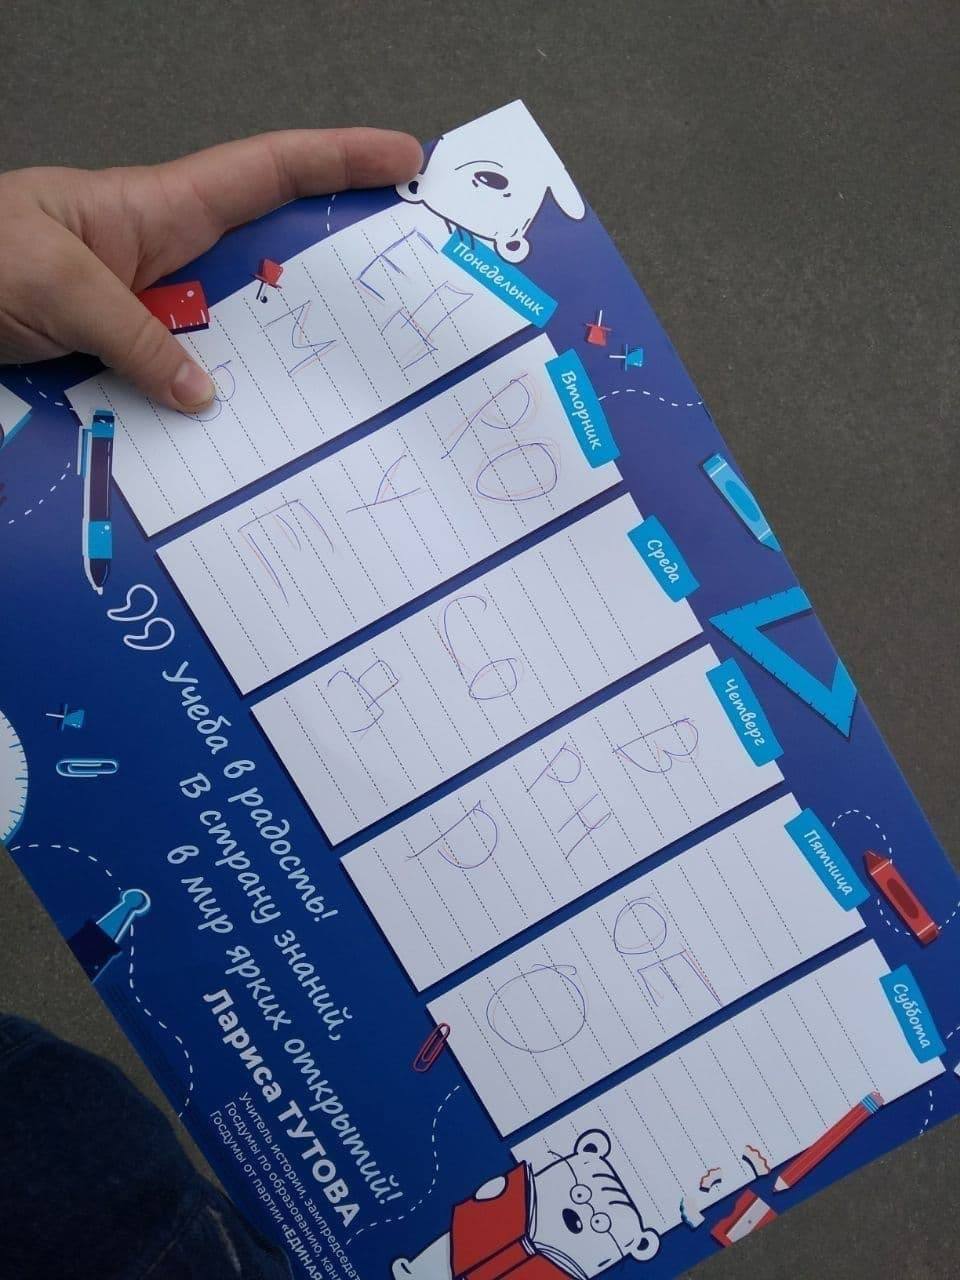 Понедельник
ЕД
М
Вторник
РО
У
Среда
Четверг
В
РН
Р
Пятница
ОЕ
О
Суббота
Учеба в радость!
В страну знаний,
в мир ярких открытий!
Лариса ТУТОВА
Учитель истории, зампредседат
Госдумы по образованию, кан
Госдумы от партии «ЕДИНАЯ